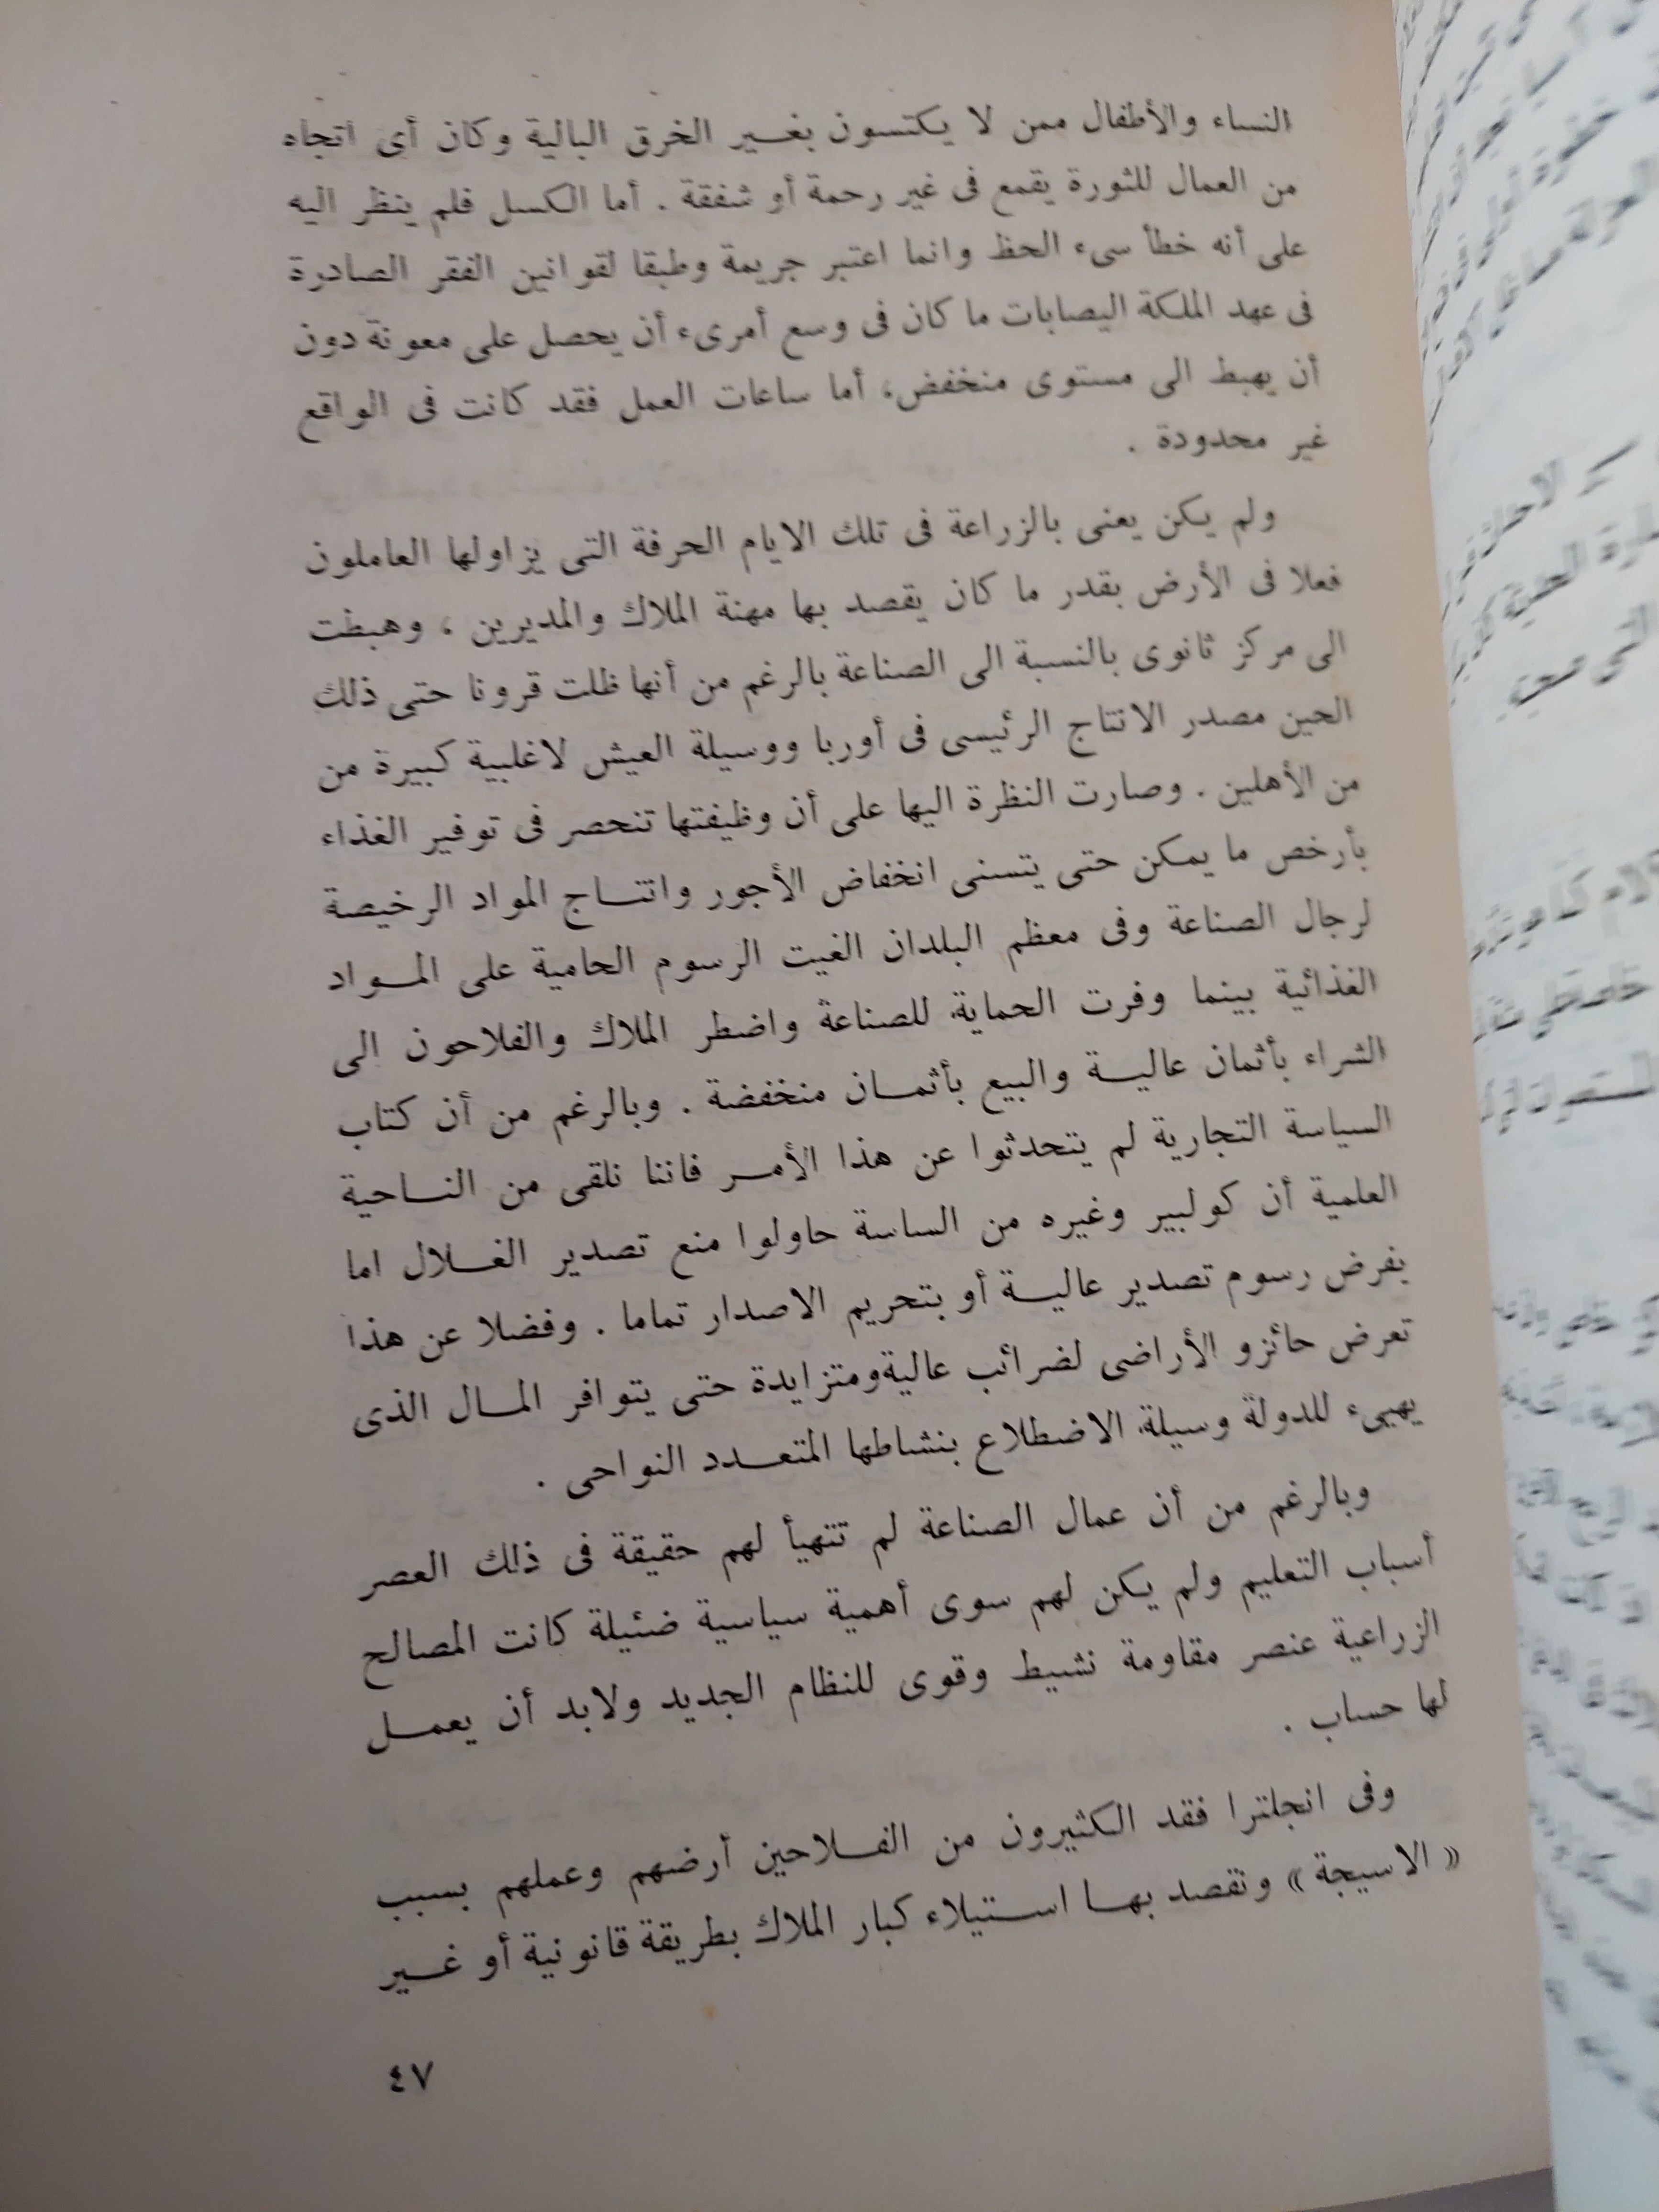 النساء والأطفال ممن لا يكتسون بغير الخرق البالية وكان أى اتجاه
من العمال للثورة يقمع فى غير رحمة أو شفقة . أما الكسل فلم ينظر اليه
على أنه خطأ سىء الحظ وانما اعتبر جريمة وطبقا لقوانين الفقر الصادرة
فى عهد الملكة اليصابات ما كان فى وسع أمرىء أن يحصل على معونة دون
أن يهبط الى مستوى منخفض، أما ساعات العمل فقد كانت فى الواقع
غير محدودة .
ولم يكن يعنى بالزراعة فى تلك الايام الحرفة التى يزاولها العاملون
فعلا فى الأرض بقدر ما كان يقصد بها مهنة الملاك والمديرين ، وهبطت
الى مركز ثانوى بالنسبة الى الصناعة بالرغم من أنها ظلت قرونا حتى ذلك
الحين مصدر الانتاج الرئيسى فى أوربا ووسيلة العيش لاغلبية كبيرة من
من الأهلين . وصارت النظرة اليها على أن وظيفتها تنحصر فى توفير الغذاء
بأرخص ما يمكن حتى يتسنى انخفاض الأجور وانتاج المواد الرخيصة
لرجال الصناعة وفى معظم البلدان الغيت الرسوم الحامية على المواد
الغذائية بينما وفرت الحماية للصناعة واضطر الملاك والفلاحون الى
الشراء بأثمان عالية والبيع بأثمان منخفضة . وبالرغم من أن كتاب
السياسة التجارية لم يتحدثوا عن هذا الأمر فاننا نلقى من الناحية
العلمية أن كولبير وغيره من الساسة حاولوا منع تصدير الغلال اما
بفرض رسوم تصدير عالية أو بتحريم الاصدار تماما . وفضلا عن هذا
تعرض حائزو الأراضى لضرائب عالية ومتزايدة حتى يتوافر المال الذى
يهيىء للدولة وسيلة الاضطلاع بنشاطها المتعدد النواحى .
وبالرغم من أن عمال الصناعة لم تتهيأ لهم حقيقة فى ذلك العصر
أسباب التعليم ولم يكن لهم سوى أهمية سياسية ضئيلة كانت المصالح
الزراعية عنصر مقاومة نشيط وقوى للنظام الجديد ولابد أن يعمل
لها حساب .
وفى انجلترا فقد الكثيرون من الفلاحين أرضهم وعملهم بسبب
« الاسيجة » ونقصد بها استيلاء كبار الملاك بطريقة قانونية أو غير
٤٧